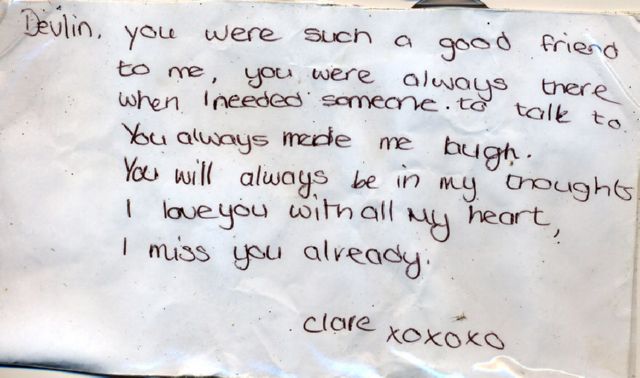 Devlin, you were such a good friend
to me, you were always there
when I needed someone to talk to
You always made me laugh.
You will always be in my thoughts
I love you with all my heart,
I miss you already.
clare xoxoxo